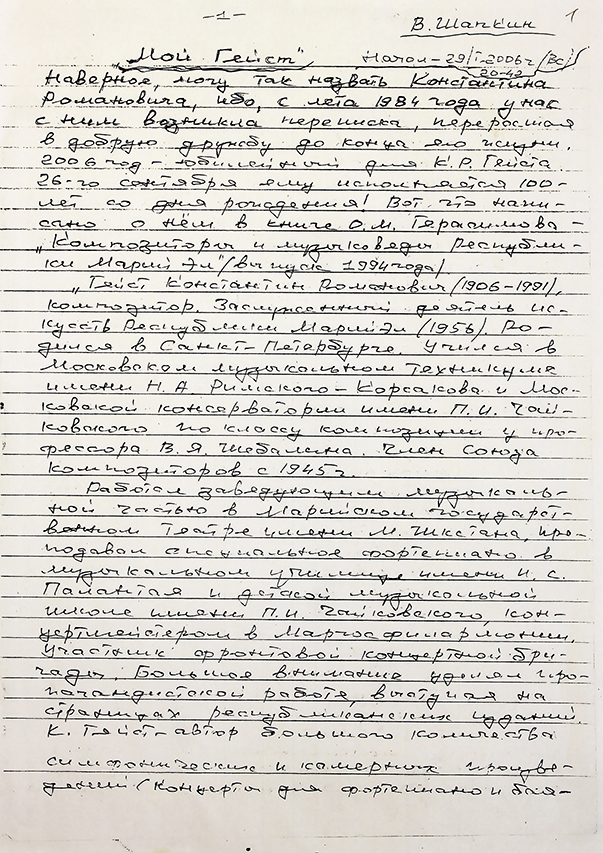 -1-
В. Шапкин
1
„Мой Гейст"
Начал - 29/I-2006 г (Вс)
20-42
Наверное, могу так назвать Константина
Романовича, ибо, с лета 1984 года у нас
с ним возникла переписка, переросшая
в добрую дружбу до конца его жизни.
2006 год - юбилейный для К.Р. Гейста.
26-го сентября ему исполняется 100-
лет со дня рождения! Вот что напи-
сано о нём в книге О.М. Герасимова -
„Композиторы и музыковеды Республи-
ки Марий Эл" (выпуск 1994 года)
„Гейст Константин Романович (1906-1991),
композитор. Заслуженный деятель ис-
кусств Республики Марий Эл (1956). Ро-
дился в Санкт-Петербурге. Учился в
Московском музыкальном техникуме
имени Н.А. Римского-Корсакова и Мос-
ковской консерватории имени П.И. Чай-
ковского по классу композиции у про-
фессора В.Я. Шебалина. Член Союза
композиторов с 1945 г.
Работал заведующим музыкаль-
ной частью в Марийском государст-
венном Театре имени М. Шкетана, пре-
подавал специальное фортепиано в
музыкальном училище имени И.С.
Палантая и детской музыкальной
школе имени П.И. Чайковского, кон-
цертмейстером в Маргосфилармонии.
Участник фронтовой концертной бри-
гады. Большое внимание уделял про-
пагандистской работе, выступая на
страницах республиканских изданий.
К. Гейст - автор большого количества
симфонических и камерных произве-
дений (концерты для фортепиано и бая-